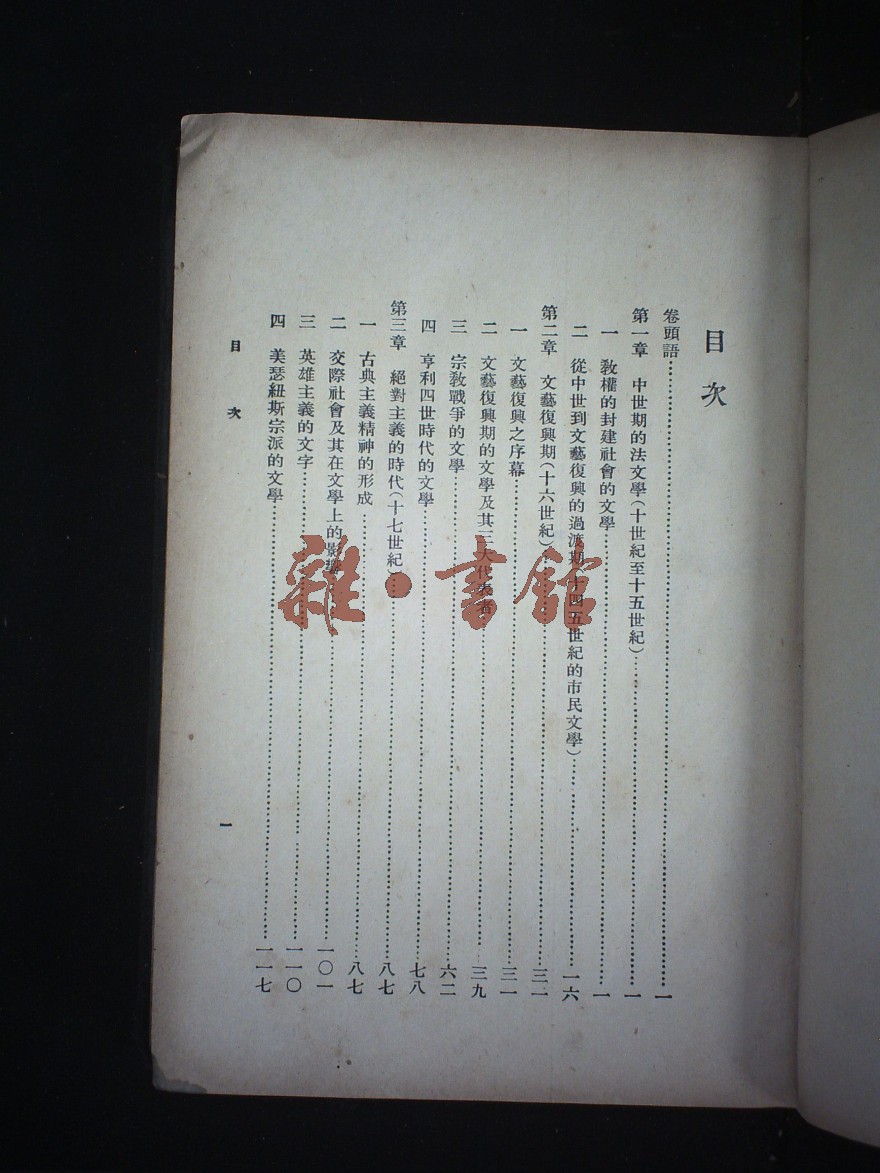 目次
卷頭語……一
第一章 中世期的法文學(十世紀至十五世紀)……一
一 教權的封建社會的文學……一
二 從中世到文藝復興的過渡期(十四五世紀的市民文學)……一六
第二章 文藝復興期(十六世紀)……三一
一 文藝復興之序幕……三一
二 文藝復興期的文學及其三大代表者……三九
三 宗教戰爭的文學……六二
四 亨利四世時代的文學……七八
第三章 絕對主義的時代(十七世紀)……八七
一 古典主義精神的形成……八七
二 交際社會及其在文學上的影響……一〇一
三 英雄主義的文字……一一〇
四 美瑟紐斯宗派的文學……一一七
目次
一
雜·書館